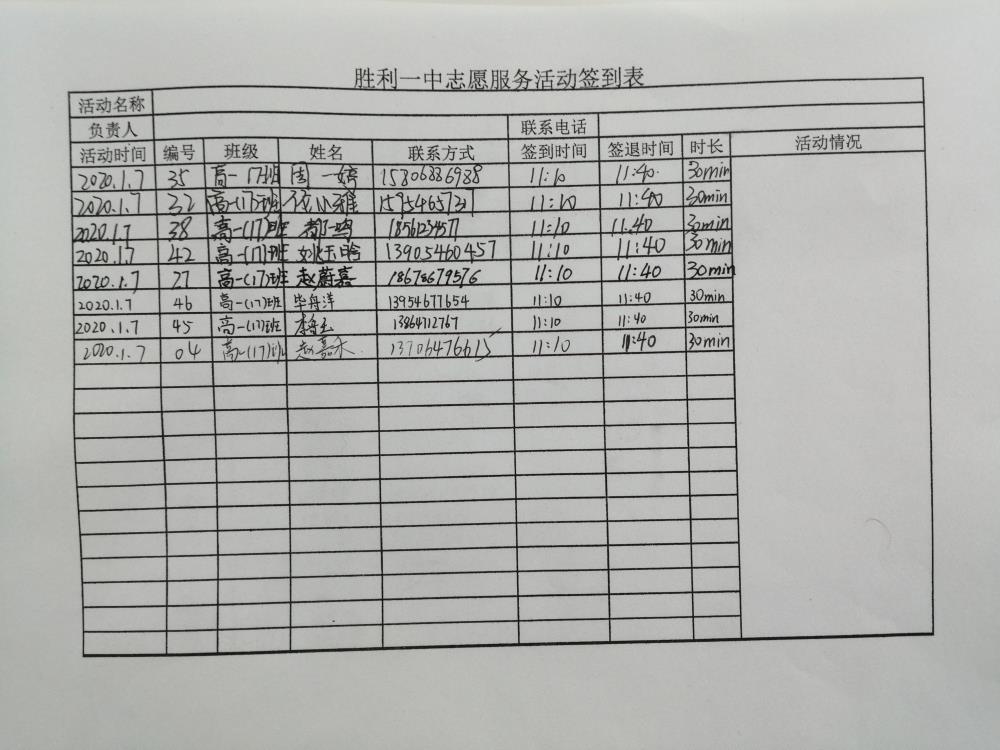 胜利一中志愿服务活动签到表
活动名称
负责人 联系电话
活动时间 编号 班级 姓名 联系方式 签到时间 签退时间 时长 活动情况
2020.1.7 35 高一17班 周一婷 15806886988 11:10 11:40 30min
2020.1.7 32 高一(17)班 11:10 11:40 30min
2020.1.7 38 高一(17)班 11:10 11:40 30min
2020.1.7 42 高一(17)班 13905460457 11:10 11:40 30min
2020.1.7 27 高一(17)班 赵蔚嘉 18678679576 11:10 11:40 30min
2020.1.7 46 高一(17)班 毕舟洋 13954677654 11:10 11:40 30min
2020.1.7 45 高一(17)班 13864712767 11:10 11:40 30min
2020.1.7 04 高一(17)班 赵嘉禾 13706476615 11:10 11:40 30min